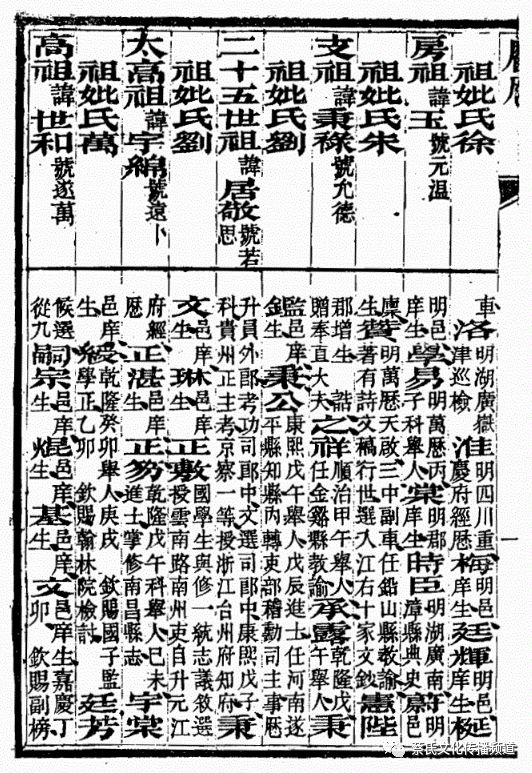 祖妣氏徐
房祖諱玉號元温
祖妣氏朱
支祖諱秉祿號允德
祖妣氏劉
二十五世祖諱居敬號若思
祖妣氏劉
太高祖諱宇綿號遠卜
祖妣氏萬
高祖諱世和號遂萬
車 洛明湖廣嶽津巡檢 淮明四川重慶府經歷 梅明邑庠生 廷輝明邑庠生 梃
明邑庠生 學易明萬曆丙子科舉人 棠明郡庠生 時臣明湖廣南漳縣典史 蔚明邑
廩生 蕡明萬曆天啟三中副車任鉛山縣教諭著有詩文稿行世選入江右十家文鈔 憲陛
郡增生 誥贈奉直大夫 之祥順治甲午舉人任金谿縣教諭 承露乾隆戊午舉人 秉
鑑邑庠監生 秉公康熙戊午舉人戊辰進士任河南遂平縣知縣內轉吏部稽勳司主事歷
升員外郎考功司郎中文選司郎中康熙戊子科貴州正主考京察一等授浙江台州府知府 秉
文邑庠生 琳邑庠生 正敷國學生與修一統志議敘選授雲南路南州吏目升元江
府經歷 正湛邑庠生 正笏乾隆戊午科舉人己未進士掌修南昌縣志 宇棠
邑庠生 綬乾隆癸卯舉人庚戌 欽賜國子監學正乙卯 欽賜翰林院檢討 廷芳
候選從九 嗣宗邑庠生 焜邑庠生 基邑庠生 文邑庠生嘉慶丁卯 欽賜副榜
一
蔡氏文化传播频道